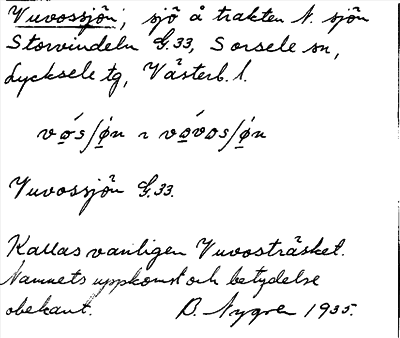 Vuvossjön, sjö å trakten N. sjön
Storvindeln G.33, Sorsele sn,
Lycksele tg, Västerb. l.
vo̲s/ø̲n ~ vo̲vos/ø̲n
Vuvossjön G.33.
Kallas vanligen Vuvosträsket.
Namnets uppkomst och betydelse
obekant. B. Nygren 1935.